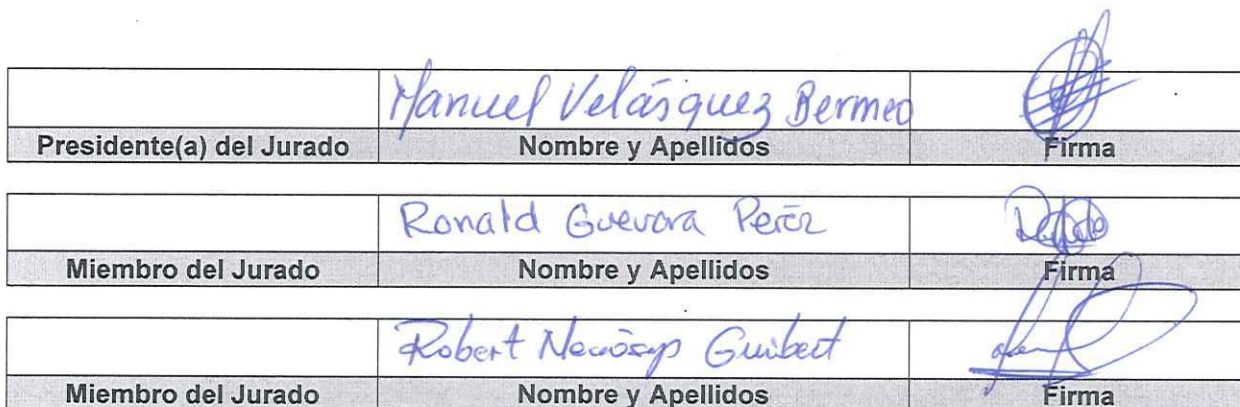 Manuel Velásquez Bermeo
Presidente(a) del Jurado Nombre y Apellidos Firma
Ronald Guevara Peréz
Miembro del Jurado Nombre y Apellidos Firma
Robert Guibert
Miembro del Jurado Nombre y Apellidos Firma